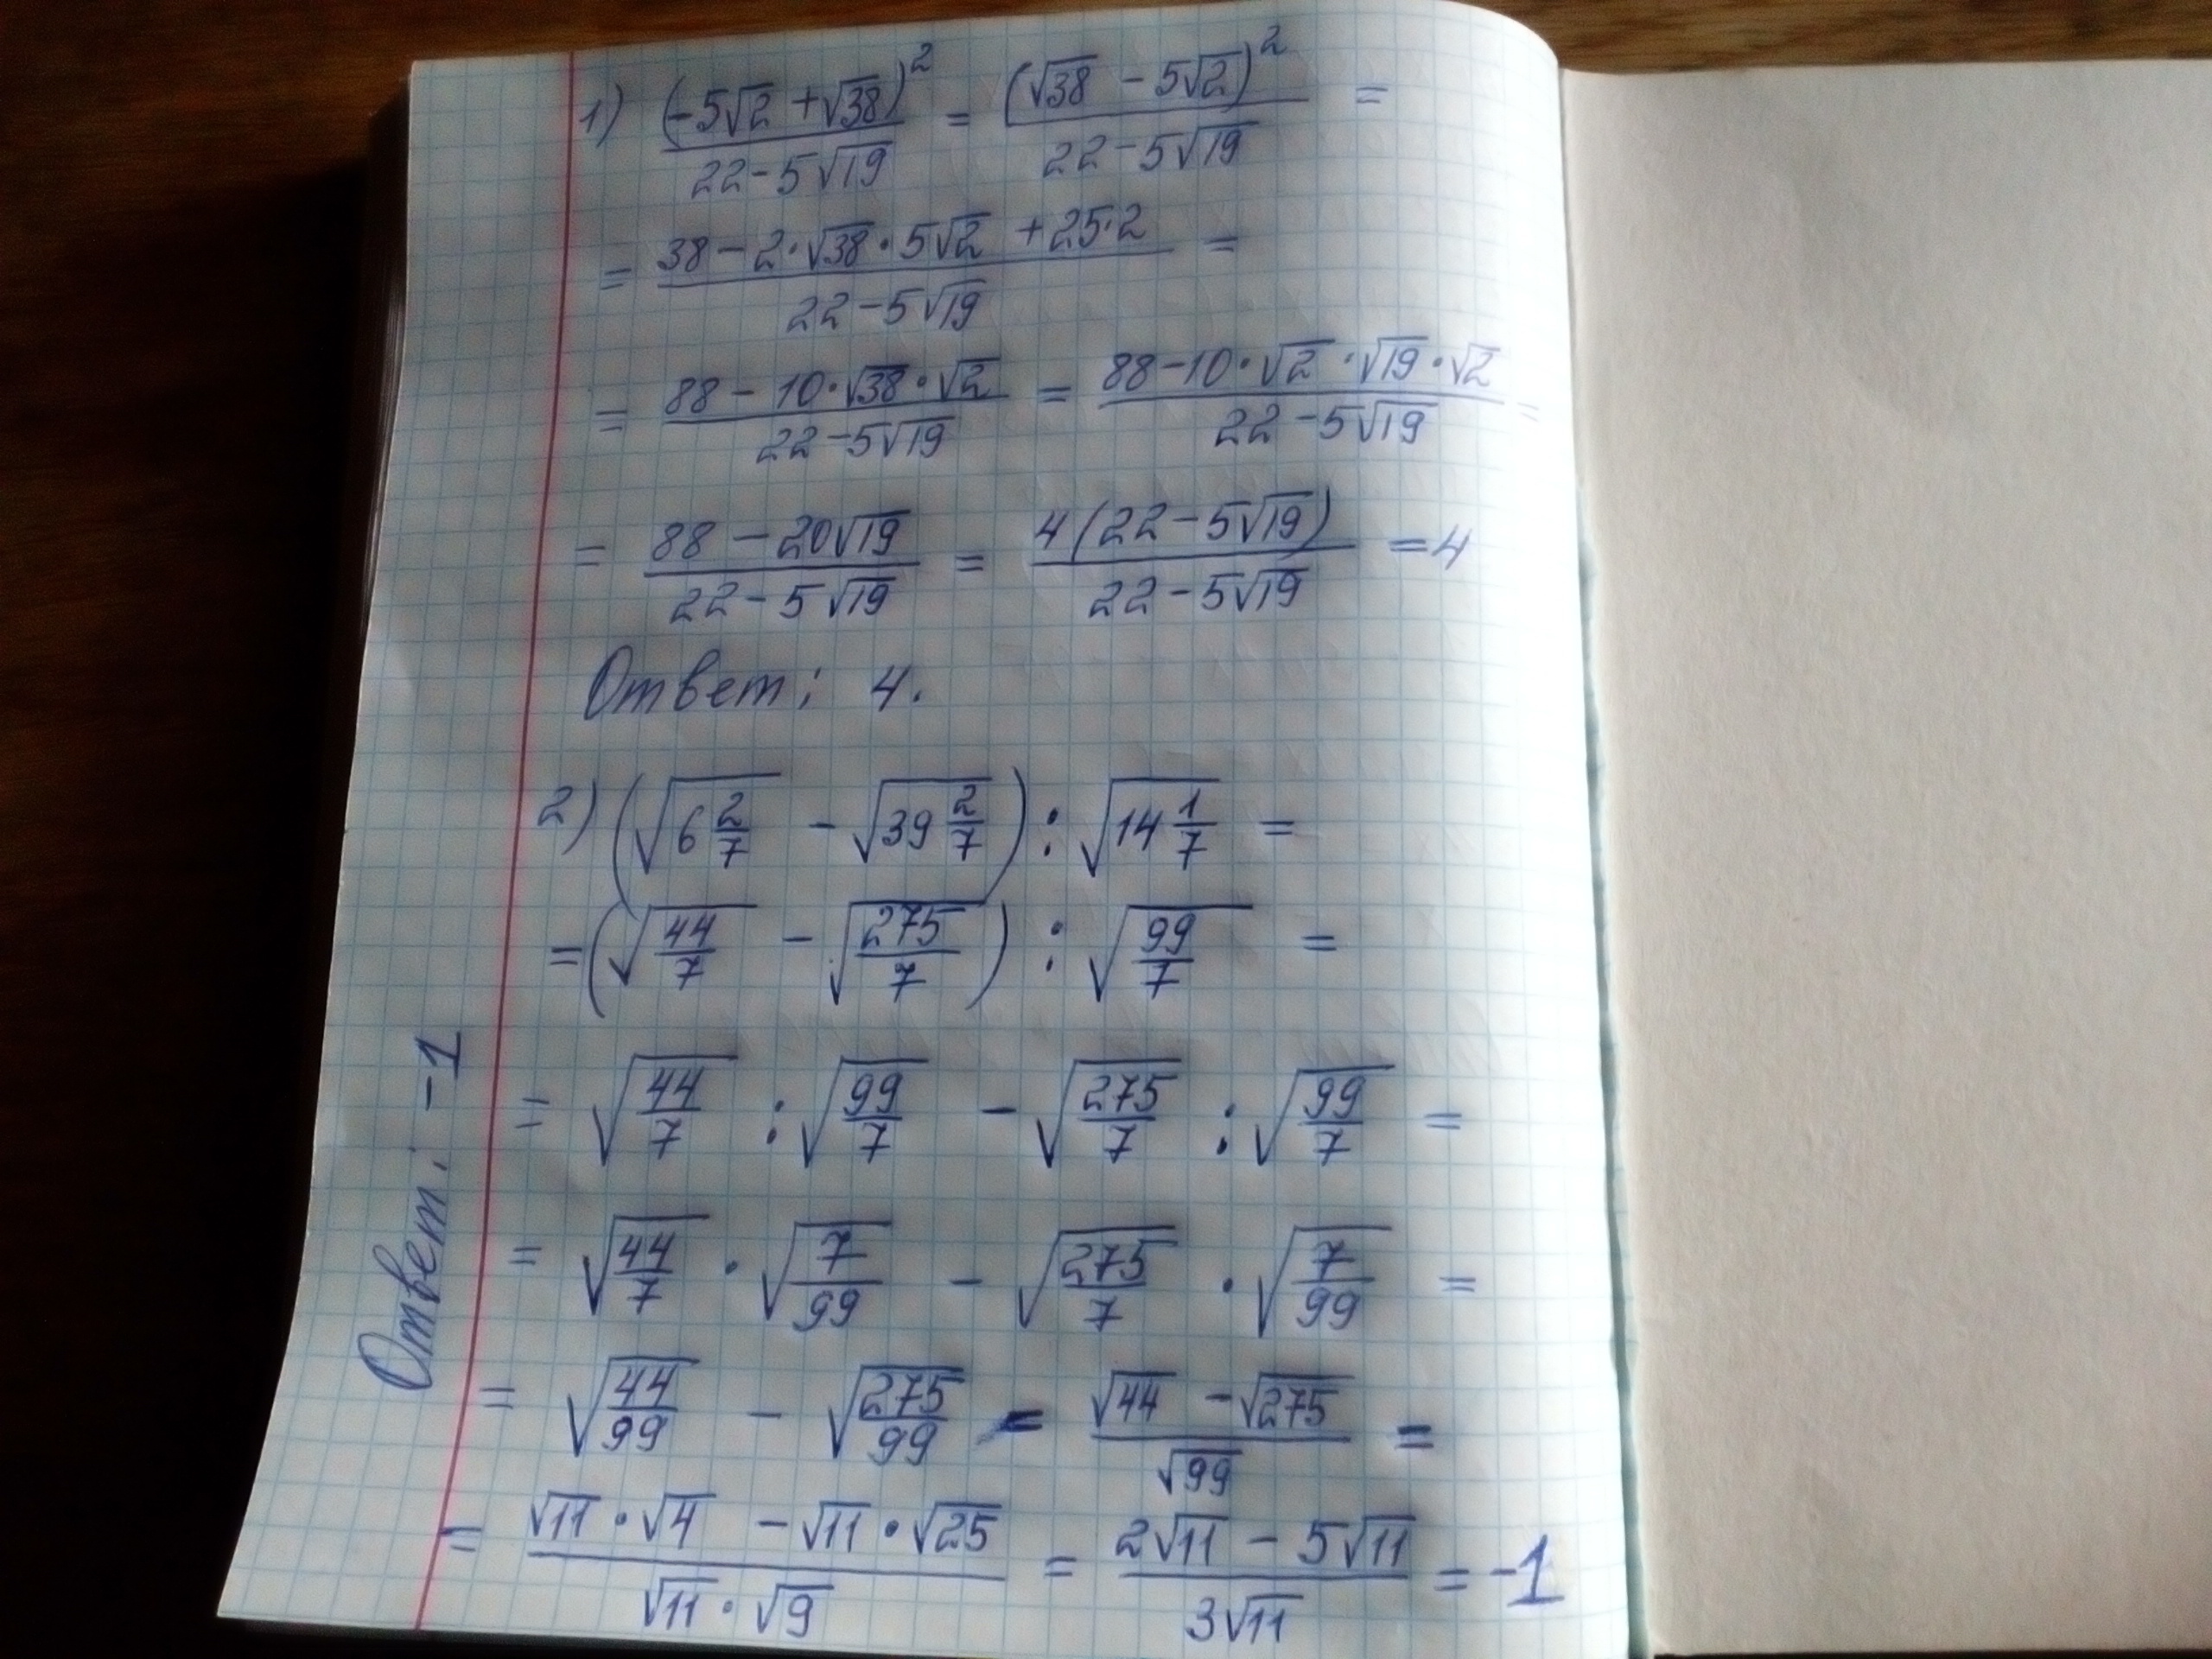 1) (-5√2 + √38)² / (22 - 5√19) = (√38 - 5√2)² / (22 - 5√19) =
= (38 - 2·√38·5√2 + 25·2) / (22 - 5√19) =
= (88 - 10·√38·√2) / (22 - 5√19) = (88 - 10·√2·√19·√2) / (22 - 5√19) =
= (88 - 20√19) / (22 - 5√19) = 4(22 - 5√19) / (22 - 5√19) = 4
Ответ: 4.
2) (√(6 2/7) - √(39 2/7)) : √(14 1/7) =
= (√(44/7) - √(275/7)) : √(99/7) =
= √(44/7) : √(99/7) - √(275/7) : √(99/7) =
= √(44/7) · √(7/99) - √(275/7) · √(7/99) =
= √(44/99) - √(275/99) = (√44 - √275) / √99 =
= (√11·√4 - √11·√25) / (√11·√9) = (2√11 - 5√11) / (3√11) = -1
Ответ: -1